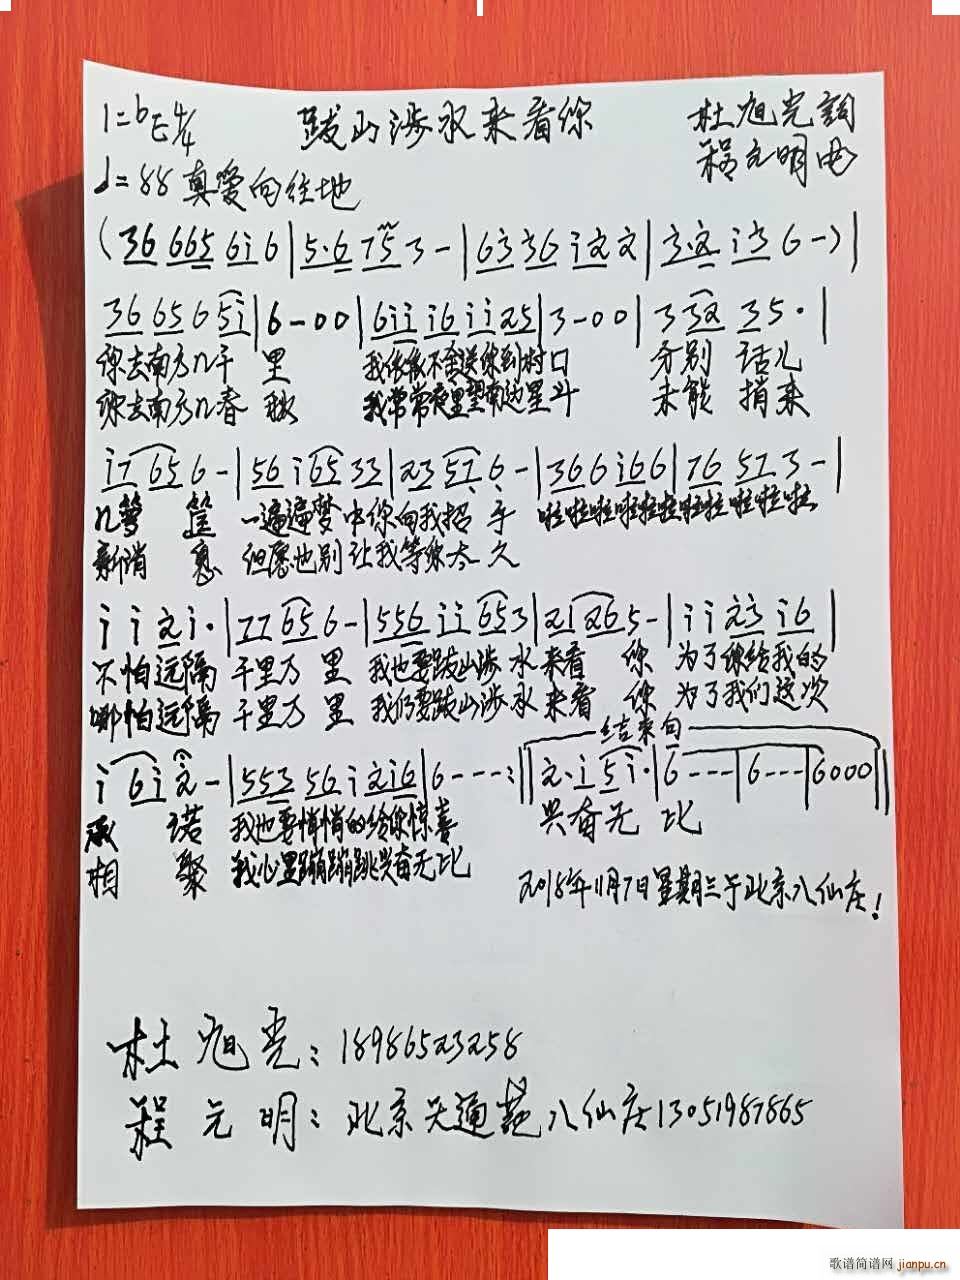 1=bE 4/4 跋山涉水来看你 杜旭光詞
程元明曲
♩=88 真愛向往地
(36 665 6i 6|5·6 75 3-|63 36 i2 2|3·2 i3 6-)|
36 65 6 5i|6-00|6ii i6 ii25|3-00|3 32 35·|
你去南方几千 里 我依依不舍送你到村口 分别 话儿
你去南方几春 秋 我常常夜里望南边星斗 未能 捎来
i7 65 6-|56 i65 33|23 57 6-|366 i66|76 57 3-|
几箩 筐 一遍遍梦中你向我招 手 啦啦啦啦啦啦啦啦啦啦啦
新消 息 但愿也别让我等你太 久
i i 2 i·|77 65 6-|556 ii 653|21 26 5-|i i 23 i6|
不怕远隔 千里万 里 我也要跋山涉 水 来看 你 为了你给我的
哪怕远隔 千里万 里 我们要跋山涉 水 来看 你 为了我们这次
结束句
i 6i 2-|553 56 i 2i6|6---:‖2·i 5 i·|6---|6---|6000‖
承 诺 我也要悄悄的给你惊喜 兴奋无 比
相 聚 我心里蹦蹦跳兴奋无比
2018年11月7日星期三于北京八仙庄!
杜旭光:18986523258
程元明:北京天通苑八仙庄13051987865
歌谱简谱网 jianpu.cn